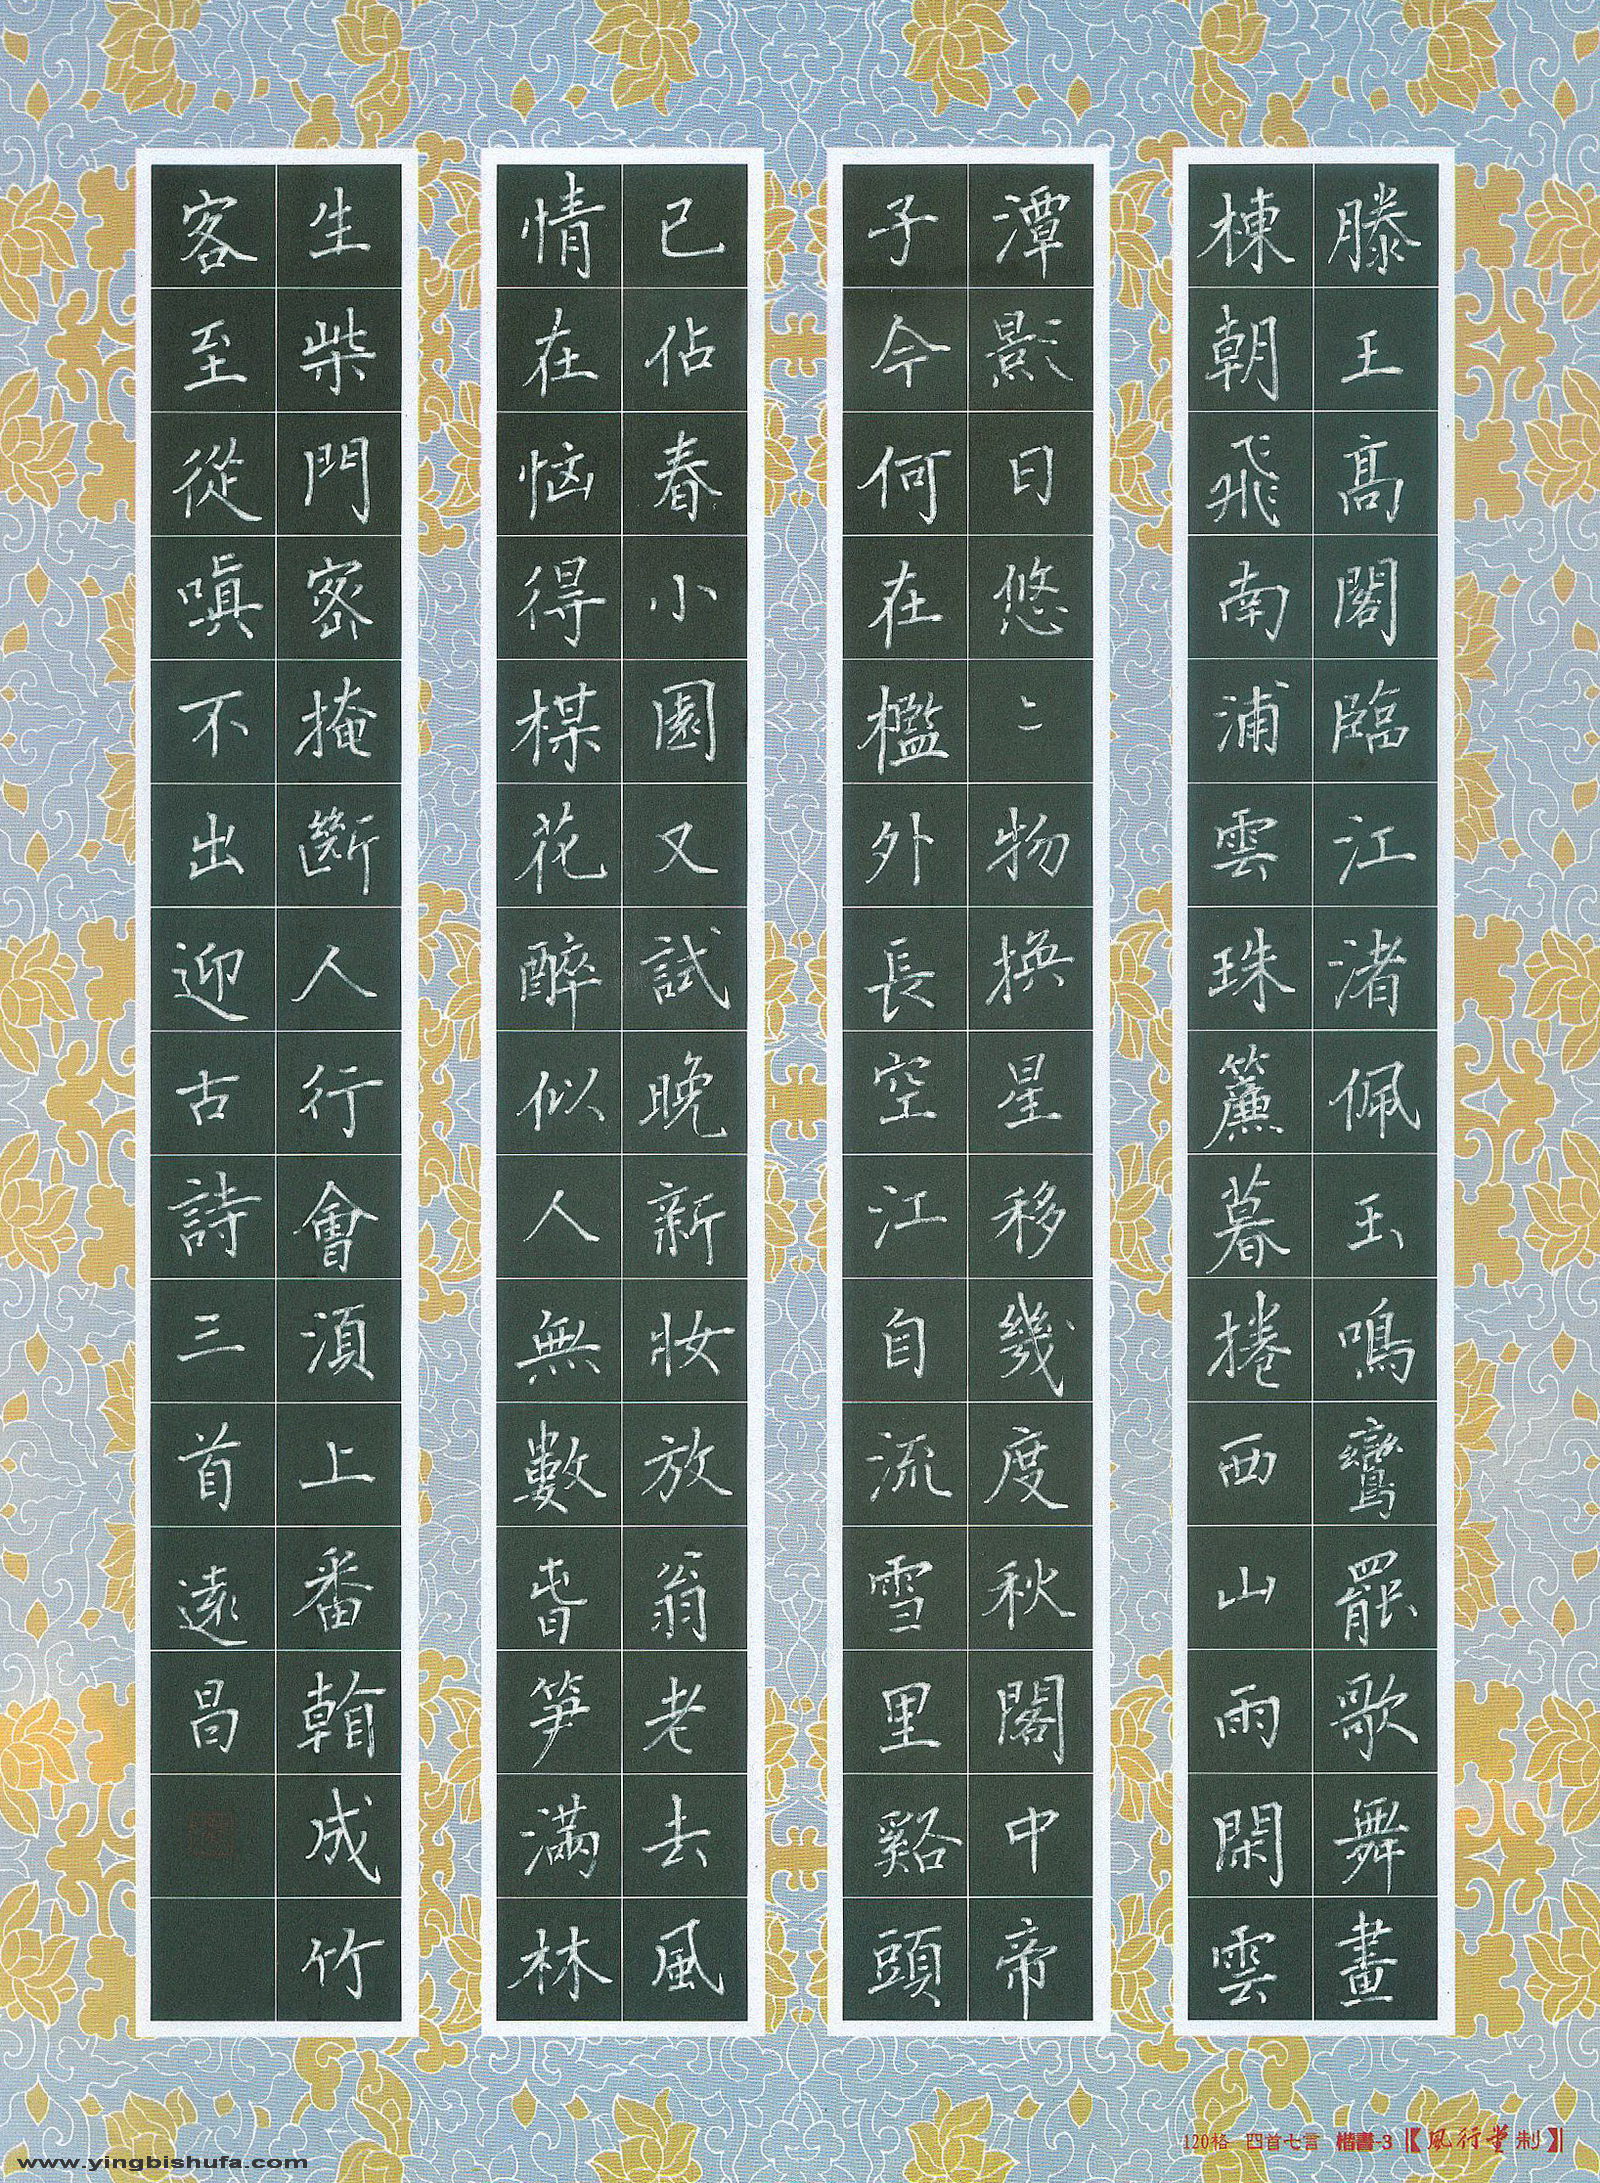 滕王高閣臨江渚佩玉鳴鸞罷歌舞畫
棟朝飛南浦雲珠簾暮捲西山雨閑雲
潭影日悠〻物換星移幾度秋閣中帝
子今何在檻外長空江自流雪里谿頭
已佔春小園又試晚新妝放翁老去風
情在恼得楳花醉似人無數旾笋滿林
生柴門密掩斷人行會須上番看成竹
客至從嗔不出迎古詩三首遠昌
120格 四首七言 楷書-3【風行堂制】
www.yingbishufa.com